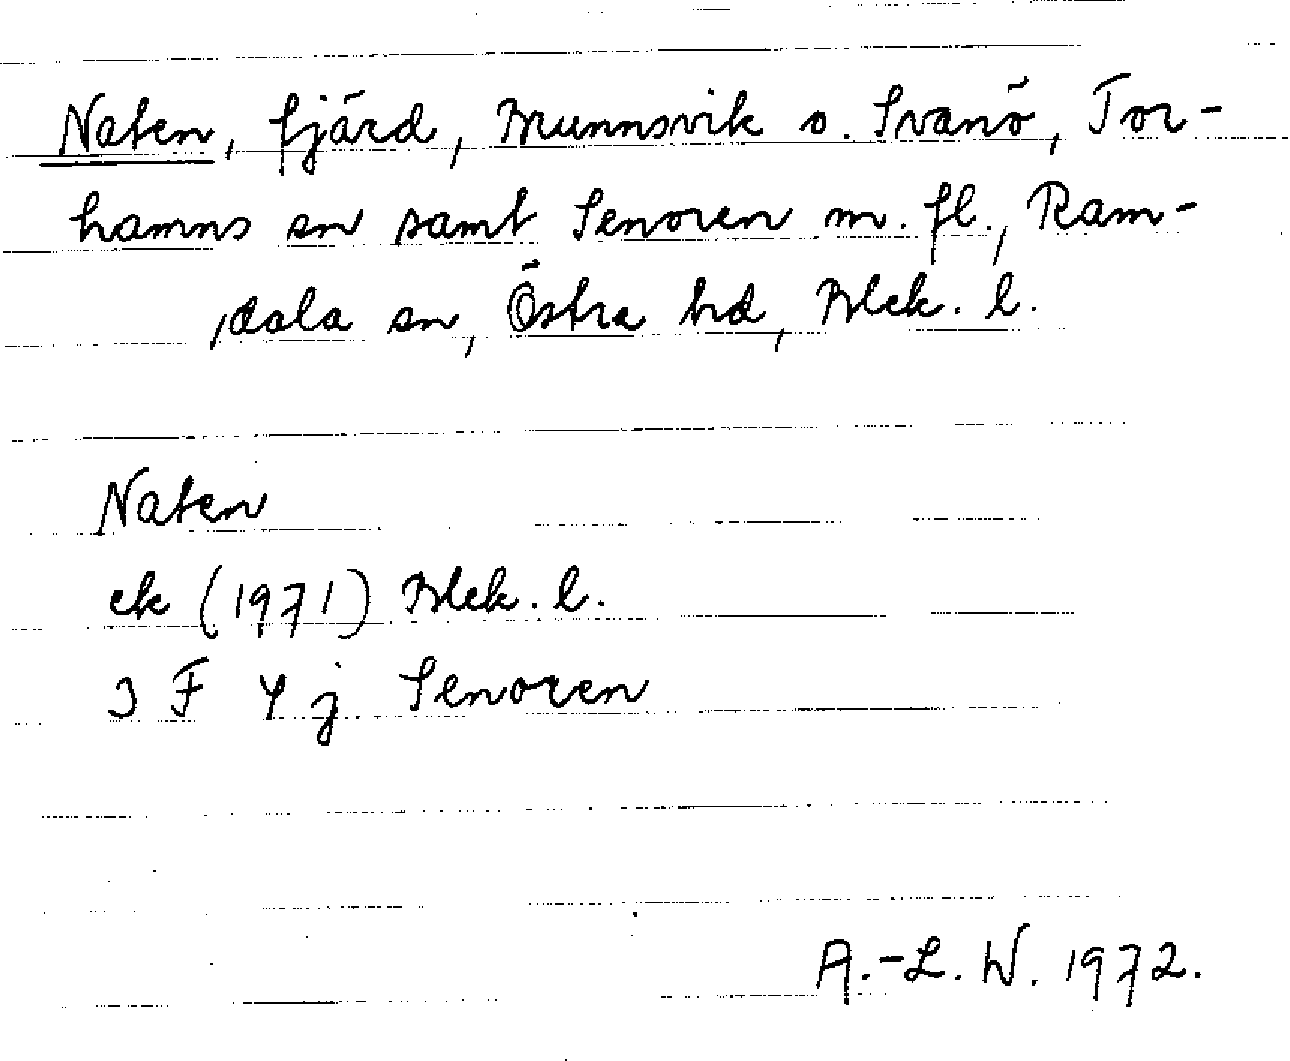 Naten, fjärd, Brunnsvik o. Svanö, Tor-
hamns sn samt Senoren m. fl., Ram-
dala sn, Östra hd, Blek. l.
Naten
ek (1971) Blek. l.
3 F 4 j Senoren
A.-L. W. 1972.